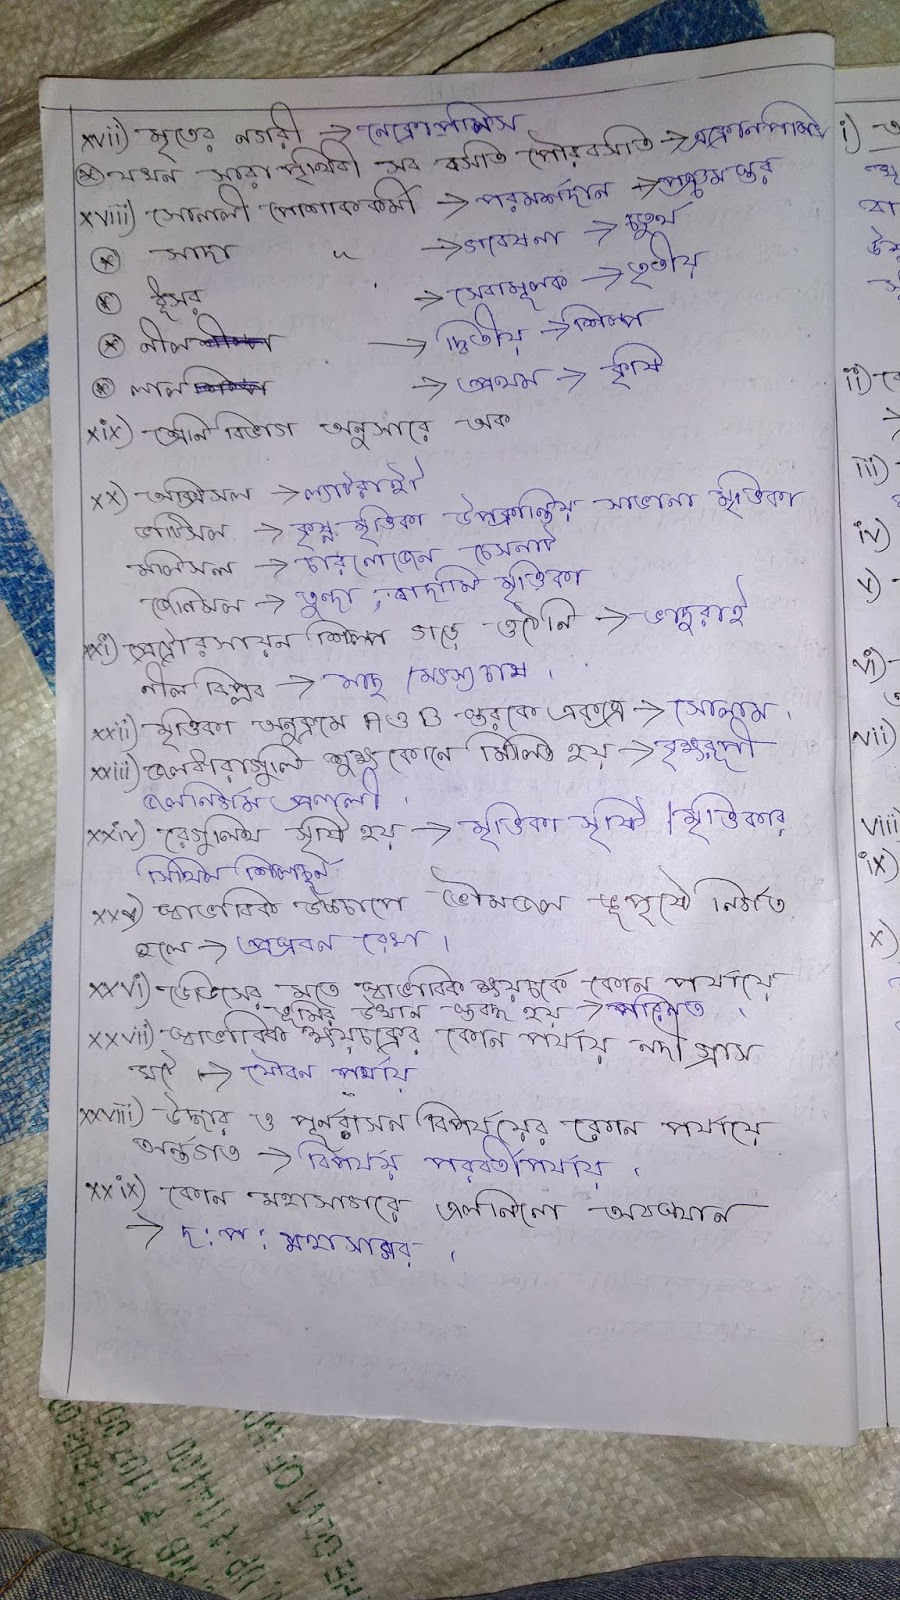 xvii) মৃতের নগরী → নেক্রোপলিস
যখন সারা পৃথিবী সব বসতি পৌরবসতি →
xviii) সোনালী পোশাককর্মী → পরমর্শদান → পঞ্চম স্তর
সাদা " → গবেষনা → চতুর্থ
ধূসর → সেবামূলক → তৃতীয়
নীল → দ্বিতীয় → শিল্প
লাল → প্রথম → কৃষি
xix) শ্রেনি বিভাগ অনুসারে
xx) অক্সিসল → ল্যাটেরাইট
ভার্টিসল → কৃষ্ণ মৃত্তিকা উপক্রান্তিয় সাভানা মৃত্তিকা
মলিসল → চারনোজেম চেসনাট
→ তুন্দ্রা, বাদামি মৃত্তিকা
xxi) পেট্রোরসায়ন শিল্প গড়ে ওঠেনি → ভাদুরাই
নীল বিপ্লব → মাছ / মৎস্যচাষ ।
xxii) মৃত্তিকা অনুক্রমে A ও B স্তরকে একত্রে → সোলাম ।
xxiii) জলধারাগুলি সূক্ষ্মকোনে মিলিত হয় → বৃক্ষরূপী
জলনির্গম প্রণালী ।
xxiv) রেগুলিথ সৃষ্টি হয় → মৃত্তিকা সৃষ্টি / মৃত্তিকার
শিথিল শিলাচূর্ন
xxv) স্বাভাবিক উচ্চচাপে ভৌমজল ভূপৃষ্ঠে নির্গত
হলে → প্রস্রবন রেখা ।
xxvi) ডেভিসের মতে স্বাভাবিক ক্ষয়চক্রে কোন পর্যায়ে
ভূমির উত্থান স্তব্দ হয় → পরিনত ।
xxvii) স্বাভাবিক ক্ষয়চক্রের কোন পর্যায় নদী গ্রাস
ঘটে → যৌবন পর্যায়
xxviii) উদ্ধার ও পূর্নবাসন বিপর্যয়ের কোন পর্যায়ে
অর্ন্তগত → বিপর্যয় পরবর্তী পর্যায় ।
xxix) কোন মহাসাগরে এলনিনো অবস্থান
→ দ: প: মহাসাগর ।
i)
ii)
iii)
iv)
v)
vi)
vii)
viii)
ix)
x)